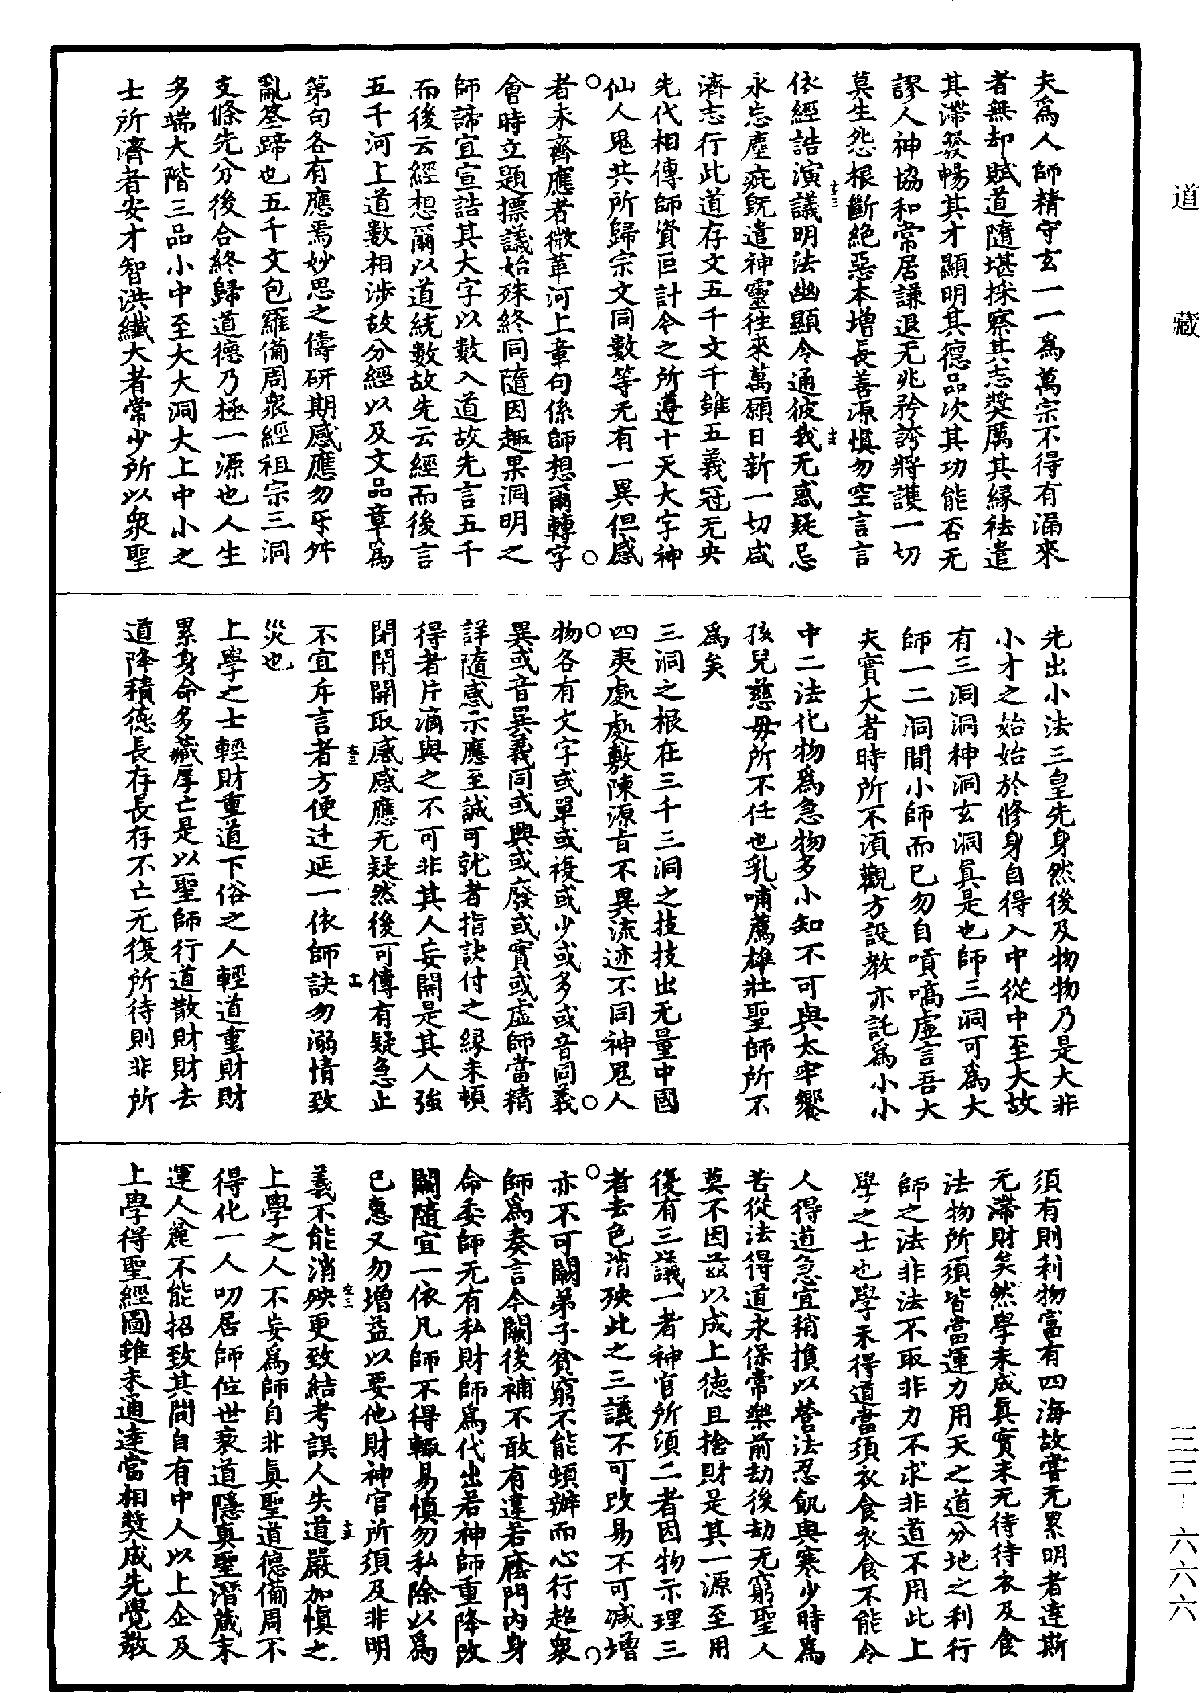 道藏
夫爲人師精守玄一一爲萬宗不得有漏來
者無却賦道隨堪採察其志獎厲其緣袪遣
其滯發暢其才顯明其德品次其功能否无
謬人神協和常居謙退无兆矜誇將護一切
莫生怨根斷絶惡本增長善源慎勿空言言
依經誥演議明法幽顯令通彼我无惑疑忌
永忘塵疵旣遣神靈往來萬願日新一切咸
濟志行此道存文五千文千雖五義冠无央
先代相傳師資叵計今之所遵十天大字神
仙人鬼共所歸宗文同數等无有一異但感
者未齊應者微革河上章句係師想爾轉字
會時立題摽議始殊終同隨因趣果洞明之
師諦宜宣誥其大字以數入道故先言五千
而後云經想爾以道統數故先云經而後言
五千河上道數相涉故分經以及文品章爲
第句各有應焉妙思之儔研期感應勿牙舛
亂筌蹄也五千文包羅備周衆經祖宗三洞
支條先分後合終歸道德乃極一源也人生
多端大階三品小中至大大洞大上中小之
士所濟者安才智洪纖大者常少所以衆聖
先出小法三皇先身然後及物物乃是大非
小才之始始於修身自得入中從中至大故
有三洞洞神洞玄洞眞是也師三洞可爲大
師一二洞間小師而已勿自嘳喎虛言吾大
夫實大者時所不須觀方設教亦託爲小小
中二法化物爲急物多小知不可與太牢饗
孩兒慈母所不任也乳哺薦雄壯聖師所不
爲矣
三洞之根在三千三洞之技技出无量中國
四夷處處敷陳源旨不異流迹不同神鬼人
物各有文字或單或複或少或多或音同義
異或音異義同或興或廢或實或虛師當精
詳隨感示應至誠可就者指訣付之緣未頓
得者片滴與之不可非其人妄開是其人強
閉閉開取感感應无疑然後可傳有疑急止
不宜斥言者方便迂延一依師訣勿溺情致
災也
上學之士輕財重道下俗之人輕道重財財
累身命多藏厚亡是以聖師行道散財財去
道降積德長存長存不亡无復所待則非所
須有則利物富有四海故害无累明者達斯
无滯財矣然學未成眞實未无待待衣及食
法物所須皆當運力用天之道分地之利行
師之法非法不取非力不求非道不用此上
學之士也學未得道當須衣食衣食不能令
人得道急宜稍損以營法忍飢與寒少時爲
苦從法得道永保常樂前劫後劫无窮聖人
莫不因兹以成上德且捨財是其一源至用
後有三議一者神官所須二者因物示理三
者去色消殃此之三議不可改易不可減增
亦不可闕弟子貧窮不能頓辦而心行超衆
師爲奏言今闕後補不敢有違若癊門内身
命委師无有私財師爲代出若神師重降改
闕隨宜一依凡師不得輙易慎勿私除以爲
已惠又勿增益以要他財神官所須及非明
義不能消殃更致結考誤人失道嚴加慎之
上學之人不妄爲師自非眞聖道德備周不
得化一人叨居師位世衰道隱眞聖潛藏末
運人麄不能招致其間自有中人以上企及
上學得聖經圖雖未通達當相獎成先覺教
三三－六六六